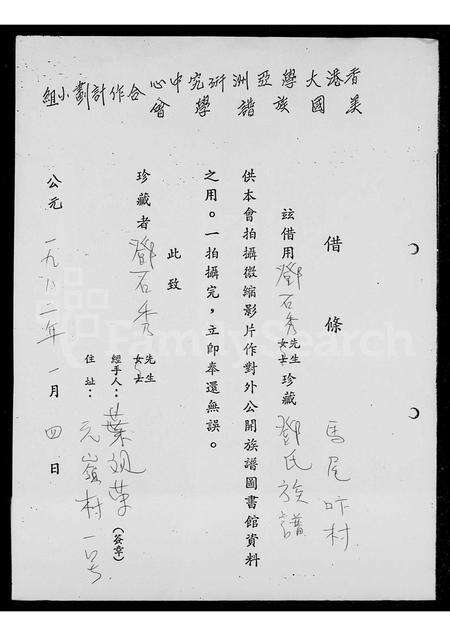 香港大學亞洲研究中心
美國族譜學會
合作計劃小組
借條
馬尾村
玆借用鄧石秀先生女士珍藏鄧氏族譜
供本會拍攝微縮影片作對外公開族譜圖書館資料
之用。一拍攝完,立即奉還無誤。
此致
珍藏者 鄧石秀 先生女士
經手人:葉(簽章)
住址:元嶺村一号
公元一九八二年一月四日
FamilySearch